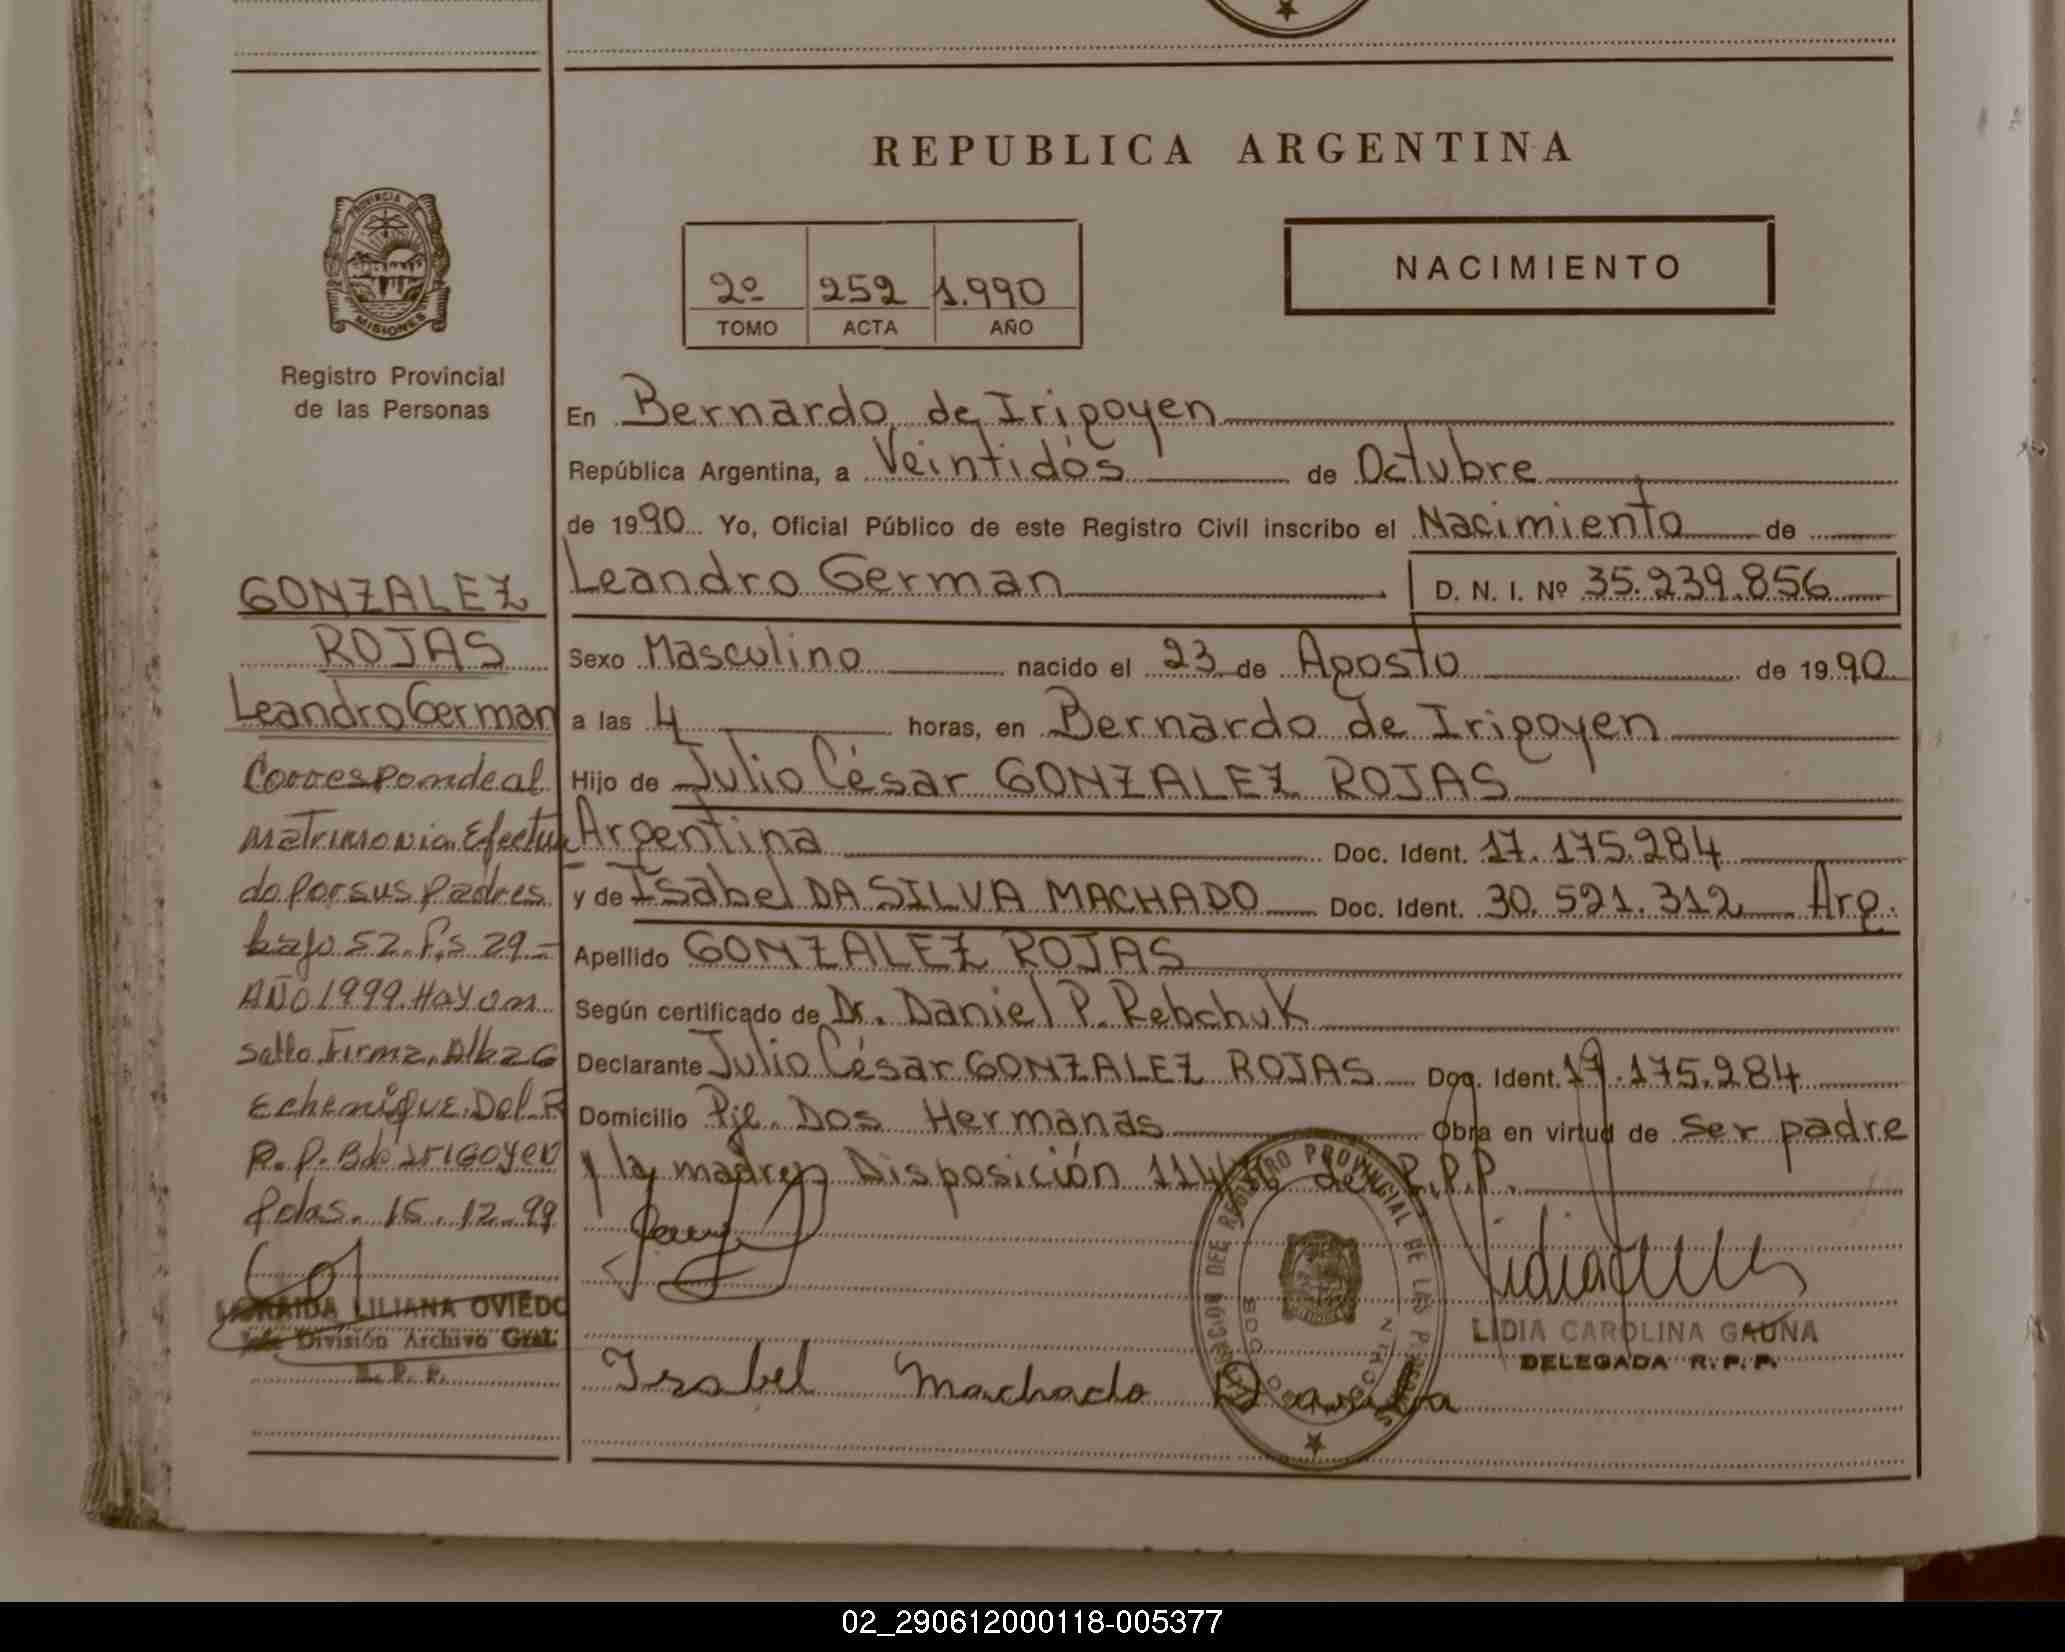 REPUBLICA ARGENTINA
NACIMIENTO
2º 252 1.990
TOMO ACTA AÑO
PROVINCIA DE
MISIONES
Registro Provincial
de las Personas
En Bernardo de Irigoyen
República Argentina, a Veintidós de Octubre
de 1990 Yo, Oficial Público de este Registro Civil inscribo el Nacimiento de
Leandro German D. N. I. Nº 35.239.856
Sexo Masculino nacido el 23 de Agosto de 1990
a las 4 horas, en Bernardo de Irigoyen
Hijo de Julio César GONZALEZ ROJAS
Argentina Doc. Ident. 17.175.284
y de Isabel DA SILVA MACHADO Doc. Ident. 30.521.312 Arg.
Apellido GONZALEZ ROJAS
Según certificado de Dr. Daniel P. Rebchuk
Declarante Julio César GONZALEZ ROJAS Doc. Ident. 17.175.284
Domicilio Pje. Dos Hermanas Obra en virtud de ser padre
y la madre Disposición de R.P.P.
LIDIA CAROLINA GAUNA
DELEGADA R.P.P.
Isabel Machado Dasilva
GONZALEZ
ROJAS
Leandro German
Corresponde al
matrimonio Efectua
do por sus padres
bajo 52. Fs 29.-
AÑO 1999. Hay un
sello Firma. Alba G
Echenique. Del. R
R. P. Bdo Irigoyen
Pdas. 15.12.99
LILIANA OVIEDO
Jefe División Archivo Gral.
R. P. P.
02_290612000118-005377